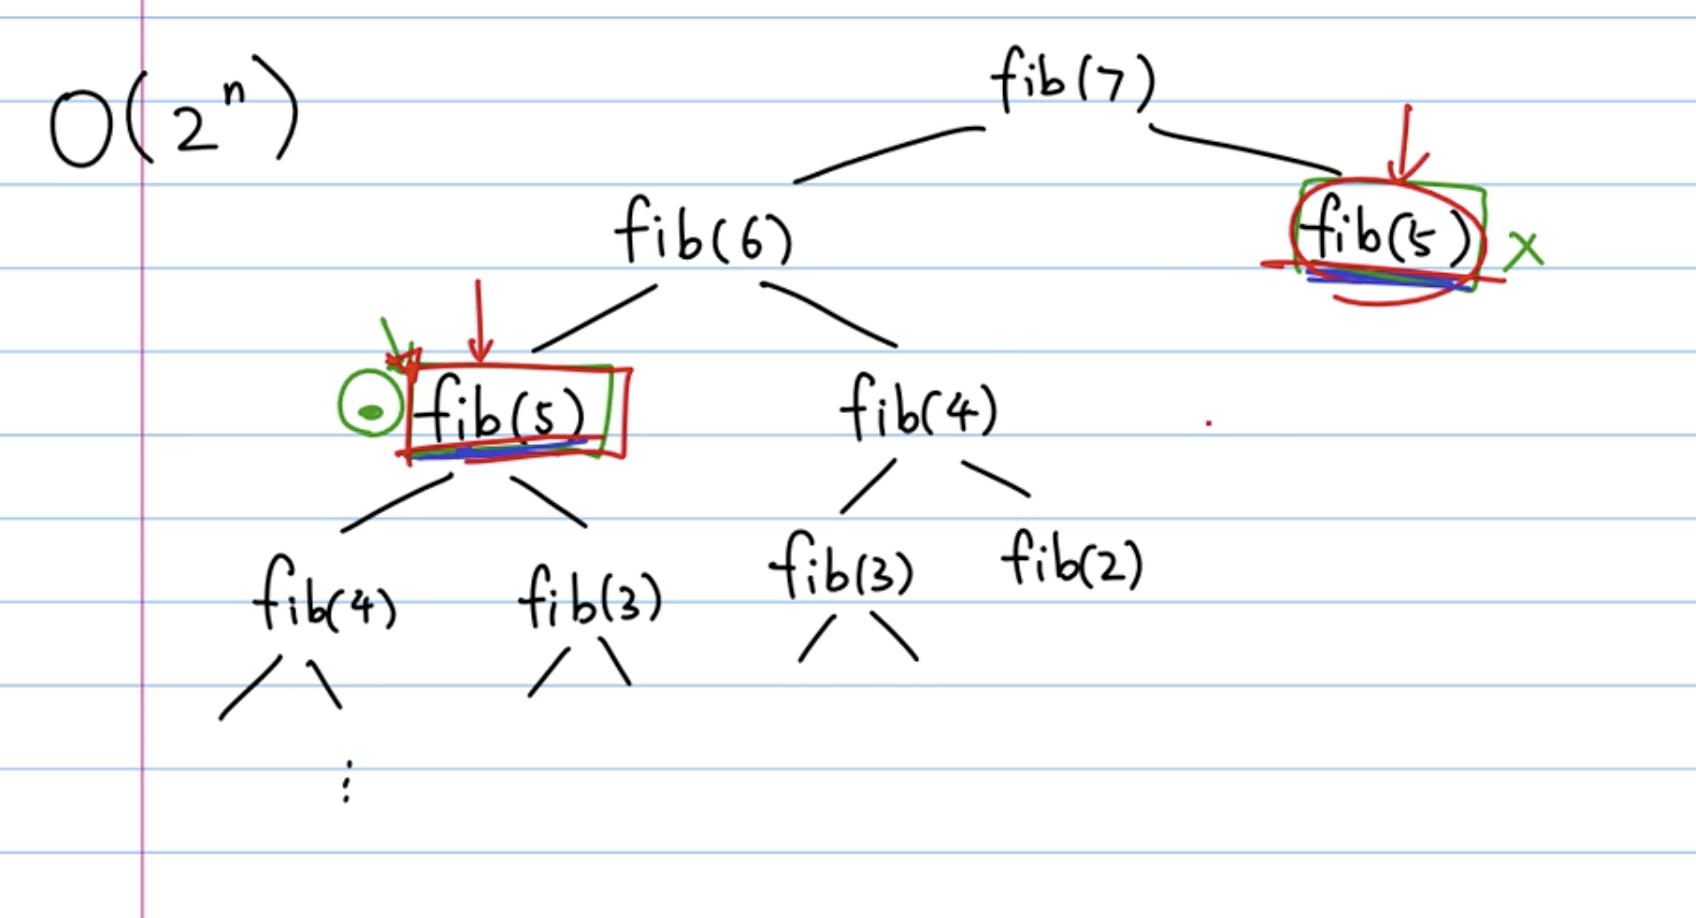 O(2ⁿ)
fib(7)
fib(6) fib(5) X
fib(5) fib(4)
fib(4) fib(3) fib(3) fib(2)
⋮